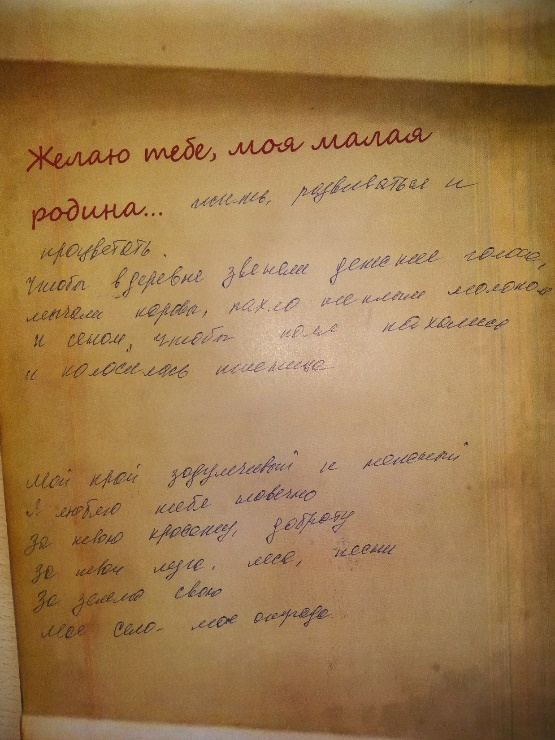 Желаю тебе, моя малая
родина... жить, развиваться и
процветать.
Чтобы в деревне звенели детские голоса,
мычали коровы, пахло теплым молоком
и сеном, чтобы поля пахались
и колосилась пшеница
Мой край задумчивый и нежный
Я люблю тебя
За твою красоту, доброту
За твои луга, леса, песни
За землю свою
Мое село - моя отрада